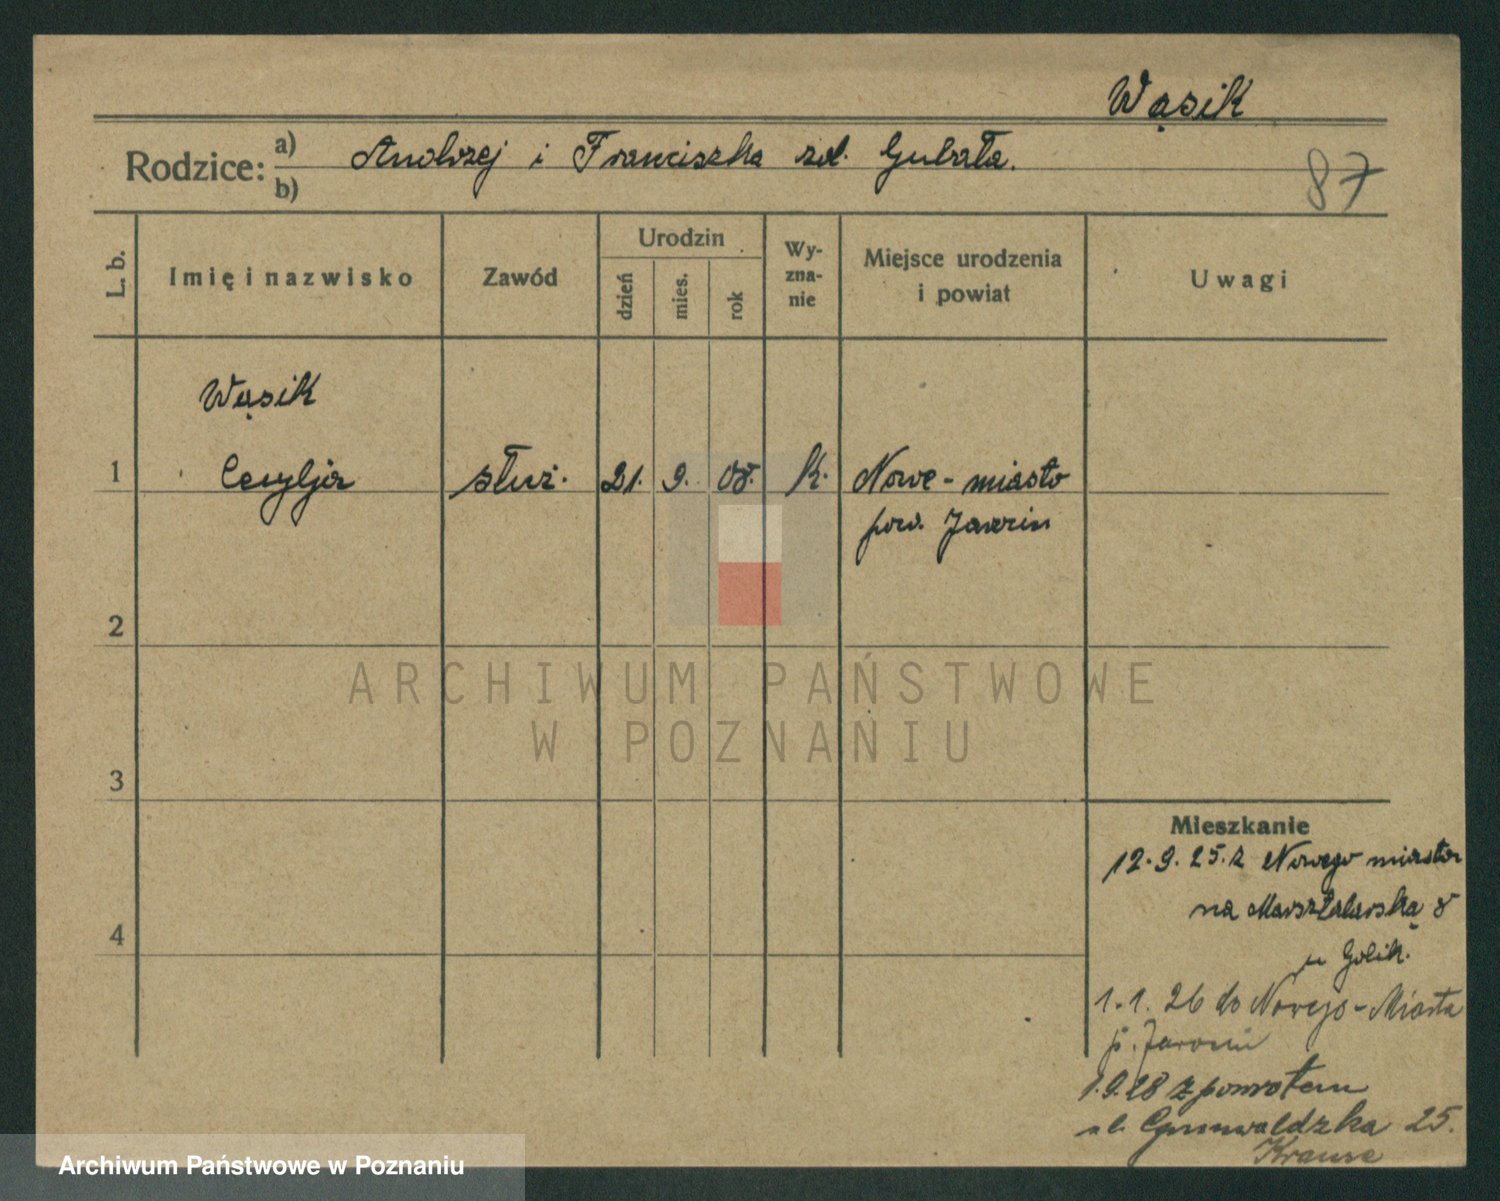 Wąsik
Rodzice: a) Andrzej i Franciszka zd. Gubała.
b)
87
L. b.
Imię i nazwisko
Zawód
Urodzin
dzień
mies.
rok
Wy-
zna-
nie
Miejsce urodzenia
i powiat
Uwagi
Wąsik
1 Cecylja służ. 21. 9. 08. k. Nowe-miasto
pow. Jarocin
2
3
4
ARCHIWUM PAŃSTWOWE
W POZNANIU
Mieszkanie
12.9.25. z Nowego miasta
na Masztalarską 8
u Golik.
1.1.26 do Nowego-Miasta
p. Jarocin
1.9.28 z powrotem
ul. Grunwaldzka 25.
Krause
Archiwum Państwowe w Poznaniu